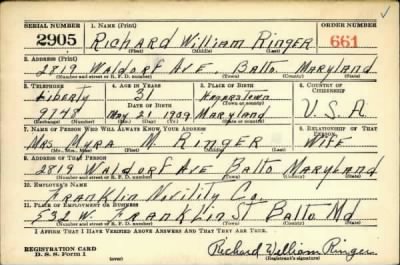 SERIAL NUMBER 1. NAME (Print) ORDER NUMBER
2905 Richard William Ringer 661
(First) (Middle) (Last)
2. ADDRESS (Print)
2819 Waldorf Ave. Balto. Maryland
(Number and street or R. F. D. number) (Town) (County) (State)
3. TELEPHONE 4. AGE IN YEARS 5. PLACE OF BIRTH 6. COUNTRY OF CITIZENSHIP
Liberty 31 Hagerstown
DATE OF BIRTH (Town or county) U.S.A.
May 24 1909 Maryland
(Exchange) (Number) (Mo.) (Day) (Yr.) (State or country)
7. NAME OF PERSON WHO WILL ALWAYS KNOW YOUR ADDRESS 8. RELATIONSHIP OF THAT PERSON
Mrs. Myra M. Ringer Wife
(Mr., Mrs., Miss) (First) (Middle) (Last)
9. ADDRESS OF THAT PERSON
2819 Waldorf Ave Balto Maryland
(Number and street or R. F. D. number) (Town) (County) (State)
10. EMPLOYER'S NAME
Franklin Novility Co.
11. PLACE OF EMPLOYMENT OR BUSINESS
532 W. Franklin St Balto Md
(Number and street or R. F. D. number) (Town) (County) (State)
I AFFIRM THAT I HAVE VERIFIED ABOVE ANSWERS AND THAT THEY ARE TRUE.
REGISTRATION CARD
D. S. S. Form 1 (over) Richard William Ringer
(Registrant's signature)